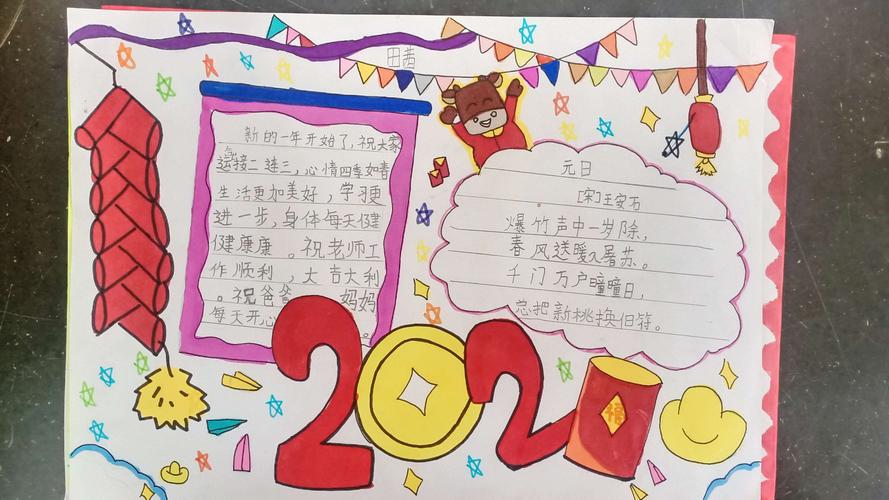 田茜
新的一年开始了,祝大家
运接二连三,心情四季如春
生活更加美好,学习更
进一步,身体每天健
健康康。祝老师工
作顺利,大吉大利
。祝爸爸 妈妈
每天开心
元日
[宋]王安石
爆竹声中一岁除,
春风送暖入屠苏。
千门万户曈曈日,
总把新桃换旧符。
202
福